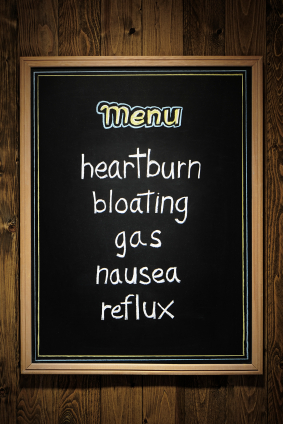 Menu
heartburn
bloating
gas
nausea
reflux